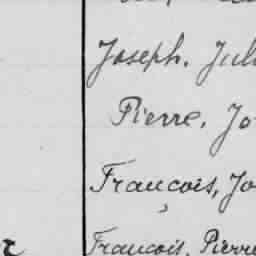 Joseph. Jul
Pierre. Jo
Francois, Jo
Francois. Pierre